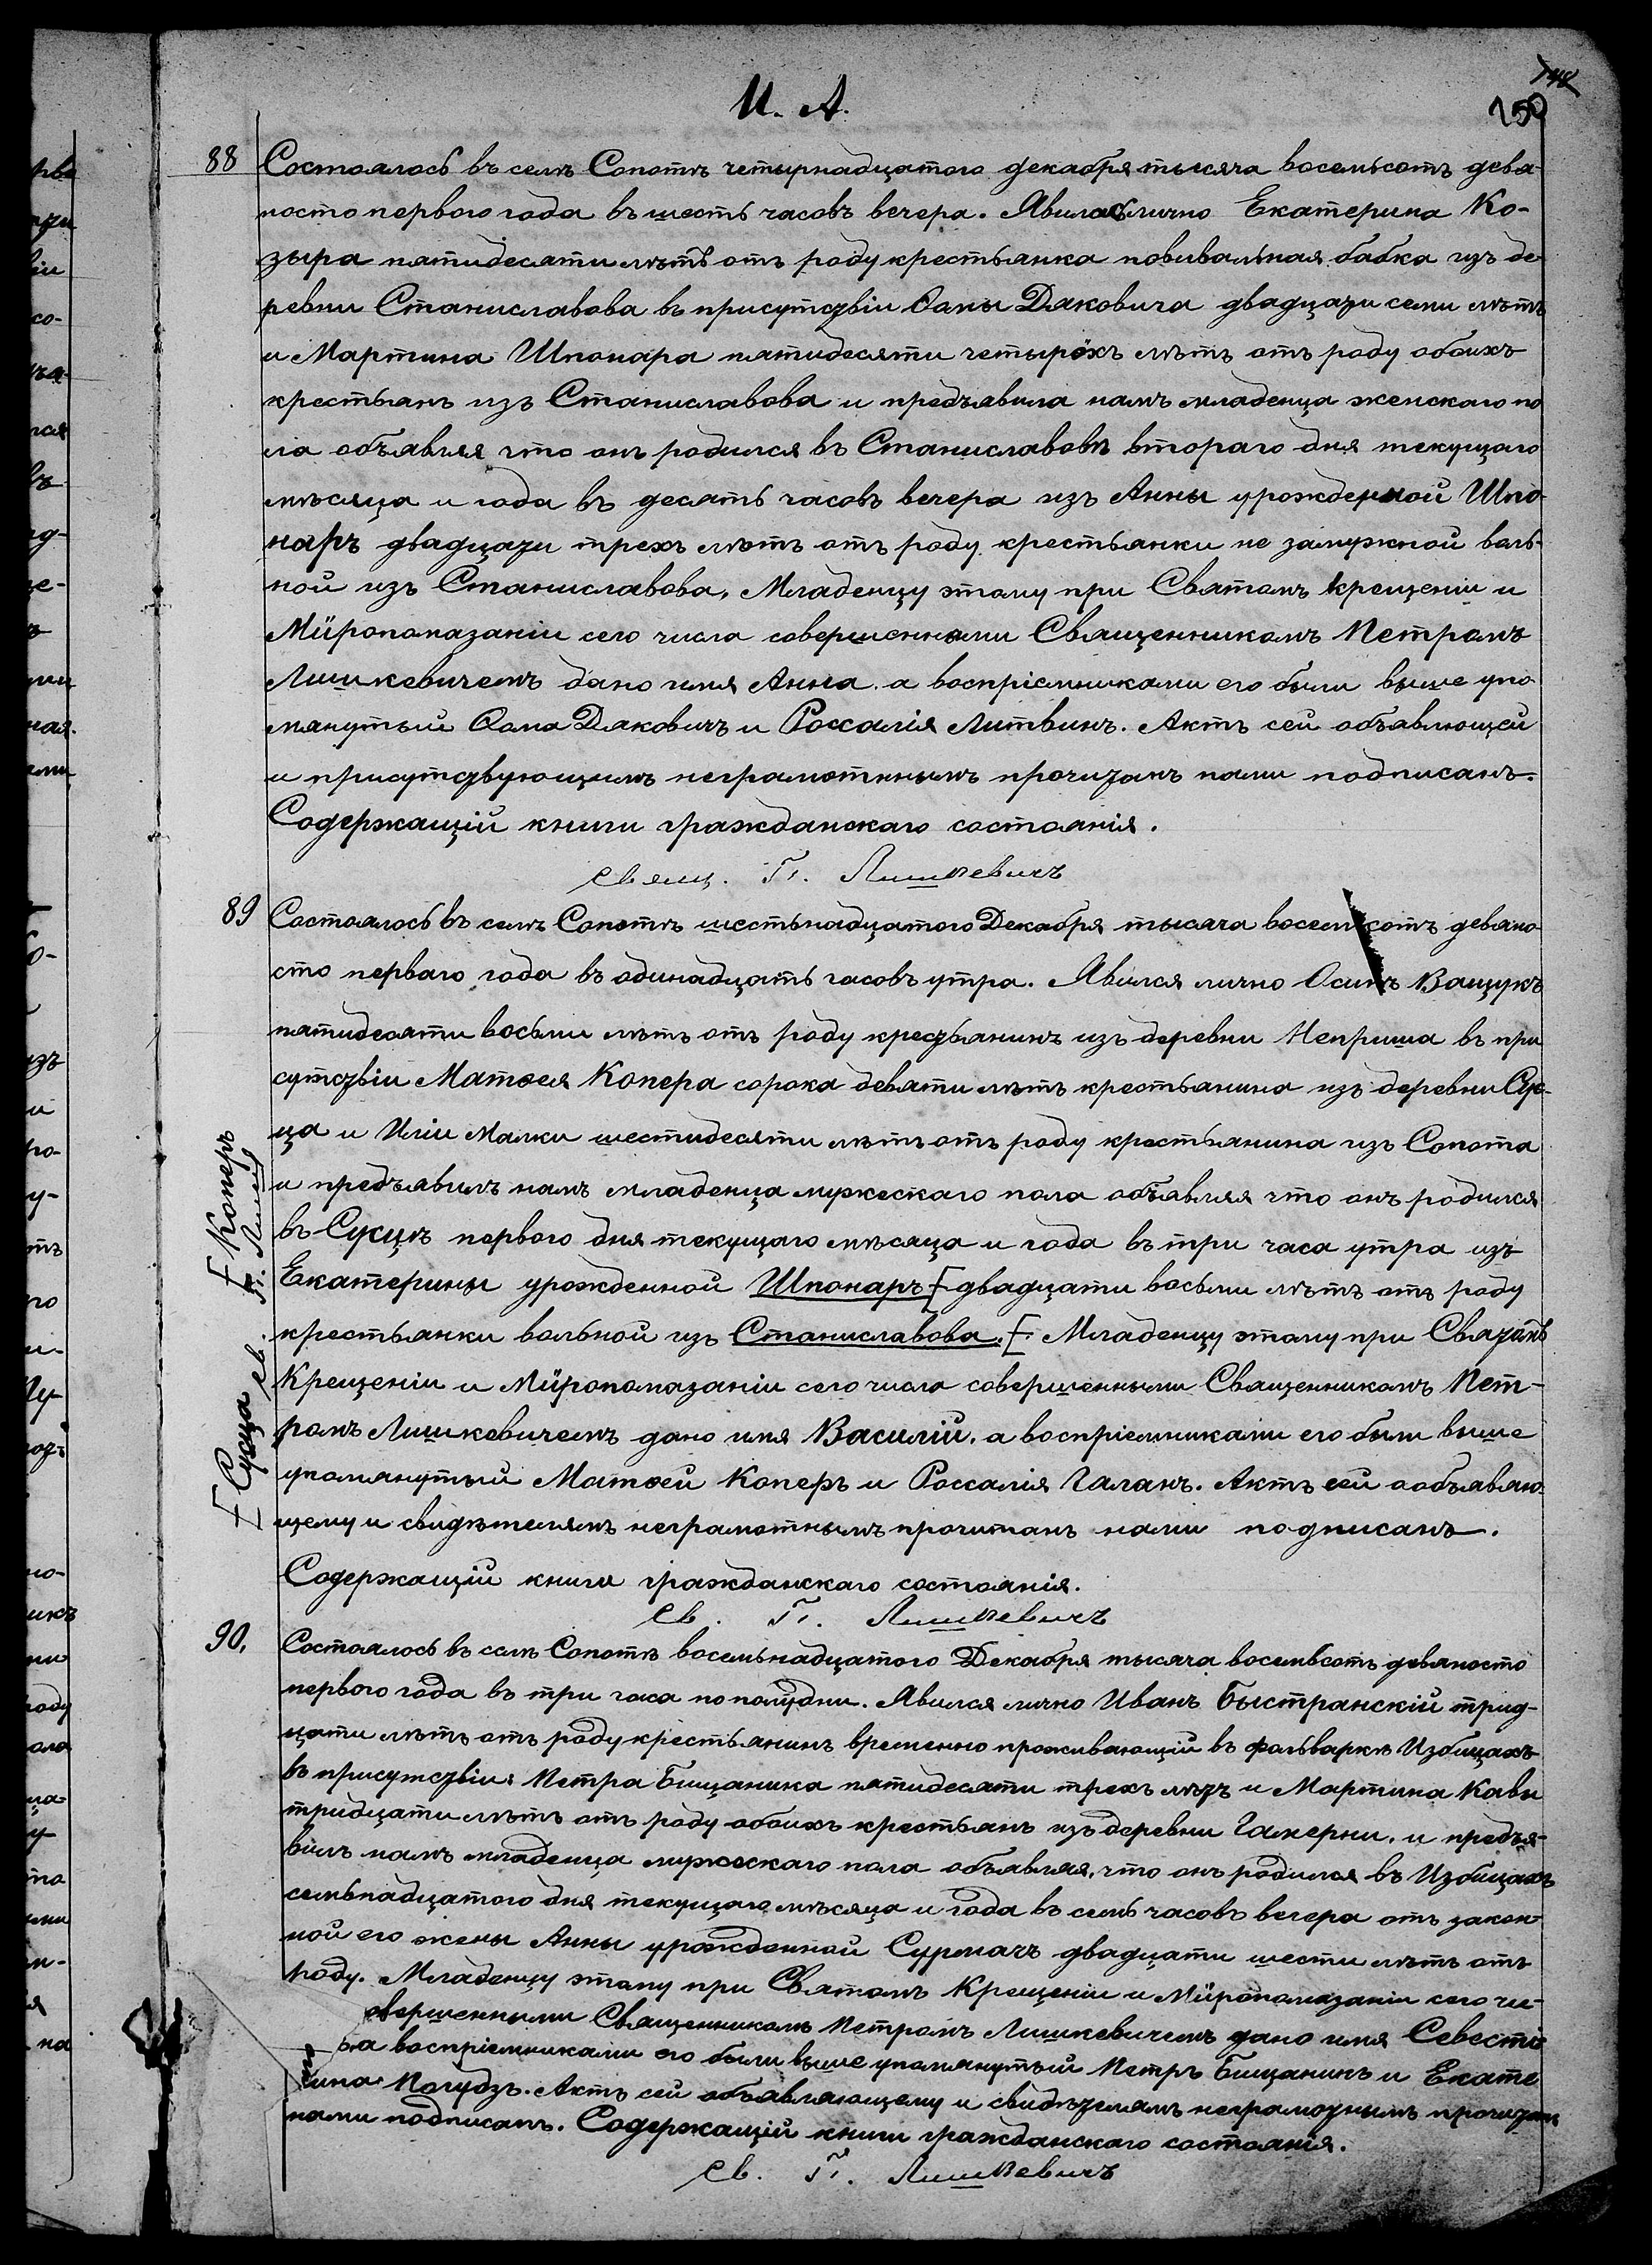 И. А.
250
88 Состоялось въ селѣ Сопотѣ четырнадцатого декабря тысяча восемьсотъ дева-
носто первого года въ шесть часовъ вечера. Явилась лично Екатерина Ко-
зыра пятидесяти лѣтъ отъ роду крестьянка повивальная бабка изъ де-
ревни Станиславова въ присутствіи Ѳомы Даковича двадцати семи лѣтъ
и Мартина Шпонара пятидесяти четырёхъ лѣтъ отъ роду обоихъ
крестьянъ изъ Станиславова и предъявила намъ младенца женскаго по
ла объявляя что онъ родился въ Станиславовѣ втораго дня текущаго
мѣсяца и года въ десять часовъ вечера изъ Анны урожденной Шпо-
наръ двадцати трехъ лѣтъ отъ роду крестьянки не замужной воль-
ной изъ Станиславова, Младенцу этому при Святомъ крещеніи и
Мѵропомазаніи сего числа совершенными Священникомъ Петромъ
Лишкевичемъ дано имя Анна. а воспріемниками его были выше упо
мянутый Ѳома Даковичъ и Россалія Литвинъ. Актъ сей объявлющей
и присутствующимъ неграмотнымъ прочитанъ нами подписанъ.
Содержащій книги гражданскаго состоянія.
свящ. П. Лишкевичъ
89 Состоялось въ селѣ Сопотѣ шестьнадцатого Декабря тысяча восемьсотъ девяно
сто перваго года въ одинадцать часовъ утра. Явился лично Осипъ Ващукъ
пятидесяти восьми лѣтъ отъ роду крестьянинъ изъ деревни Неприша въ при
сутствіи Матѳея Копера сорока девяти лѣтъ крестьянина изъ деревни Сук-
ца и Иліи Малки шестидесяти лѣтъ отъ роду крестьянина изъ Сопота
и предъявилъ намъ младенца мужескаго пола объявляя что онъ родился
въ Сукцѣ первого дня текущаго мѣсяца и года въ три часа утра изъ
Екатерины урожденной Шпонаръ [ двадцати восьми лѣтъ отъ роду
крестьянки вольной изъ Станиславова. [ Младенцу этому при Святомъ
Крещеніи и Мѵропомазаніи сего числа совершенными Священникомъ Пет-
ромъ Лишкевичемъ дано имя Василій. а воспріемниками его были выше
упомянутый Матѳей Коперъ и Россалія Галанъ. Актъ сей ообъявляю-
щему и свидѣтелямъ неграмотнымъ прочитанъ нами подписанъ.
Содержащій книги гражданскаго состоянія.
Св. П. Лишкевичъ
[ Коперъ
[ Сукца св. П. Лишк
90. Состоялось въ селѣ Сопотѣ восемьнадцатого Декабря тысяча восемьсотъ девяносто
первого года въ три часа по полудни. Явился лично Иванъ Быстранскій трид-
цати лѣтъ отъ роду крестьянинъ временно проживающій въ фольваркѣ Избицахъ
въ присутствіи Петра Бищаника пятидесяти трехъ лѣтъ и Мартина Кавы
тридцати лѣтъ отъ роду обоихъ крестьянъ изъ деревни Гамерни. и предъя-
вилъ намъ младенца мужескаго пола объявляя, что онъ родился въ Избицахъ
семьнадцатого дня текущаго мѣсяца и года въ семь часовъ вечера отъ закон-
ной его жены Анны урожденной Сурмачъ двадцати шести лѣтъ отъ
роду. Младенцу этому при Святомъ Крещеніи и Мѵропомазаніи сего чи-
овершенными Священникомъ Петромъ Лишкевичемъ дано имя Севестіа
а воспріемниками его были выше упомянутый Петръ Бищанинъ и Екате
рина Погудзъ. Актъ сей объявляющему и свидѣтелямъ неграмотнымъ прочитанъ
нами подписанъ. Содержащій книги гражданскаго состоянія.
Св. П. Лишкевичъ